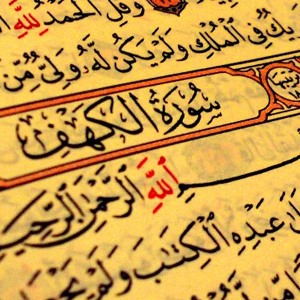 وَقُلِ ٱلْحَمْدُ لِلَّهِ
يكٌ فِي ٱلْمُلْكِ وَلَمْ يَكُن لَّهُۥ وَلِيٌّ مِّنَ
سُورَةُ الكَهْفِ
ٱللَّهِ ٱلرَّحْمَٰنِ ٱلرَّحِي
عَبْدِهِ ٱلْكِتَٰبَ وَلَمْ يَجْعَل